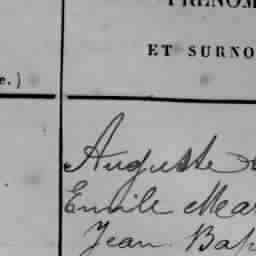 PRÉNOM
ET SURNO
e.)
Auguste
Emile Mar
Jean Bap